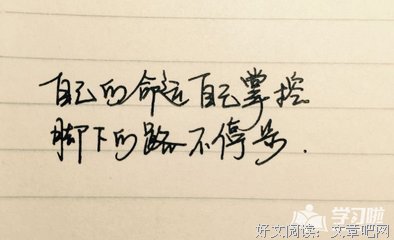 自己的命运自己掌控
脚下的路不停步.
学习啦
好文阅读：文章吧网